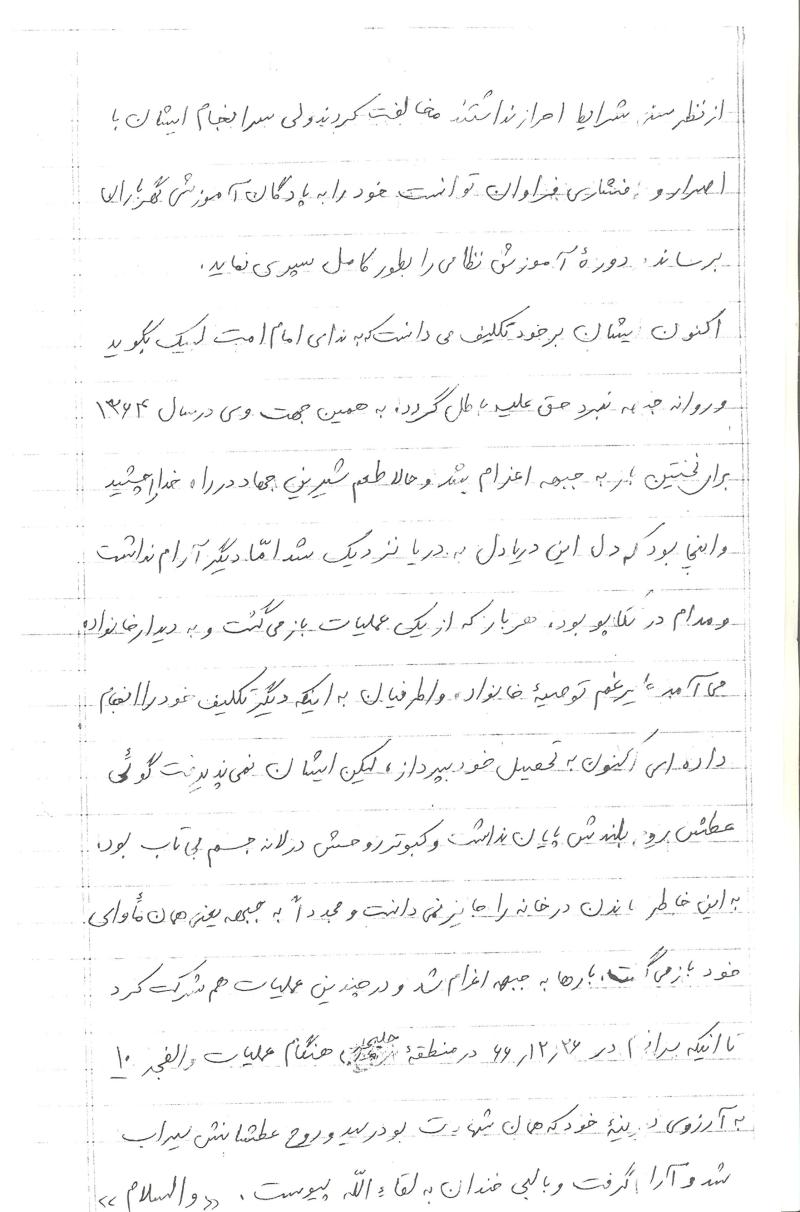 از نظر سنی شرایط احراز نداشتند مخالفت کردند ولی سرانجام ایشان با
اصرار و فشاری فراوان توانست خود را به پادگان آموزشی گهرباران
برساند. دورهٔ آموزش نظامی را بطور کامل سپری نماید.
اکنون ایشان بر خود تکلیف می دانست که به ندای امام امت لبیک بگوید
و روانه جبهه نبرد حق علیه باطل گردد. به همین جهت وی در سال ۱۳۶۴
برای نخستین بار به جبهه اعزام شد و حالا طعم شیرین جهاد در راه خدا را چشید
و اینجا بود که دل این دریادل به دریا نزدیک شد امّا دیگر آرام نداشت
و مدام در تکاپو بود. هر بار که از یک عملیات باز می گشت و به دیدار خانواده
می آمد علیرغم توصیهٔ خانواده و اطرافیان به اینکه دیگر تکلیف خود را انجام
داده ای اکنون به تحصیل خود بپرداز، لیکن ایشان نمی پذیرفت گوئی
عطش روح بلندش پایان نداشت و کبوتر روحش در لانه جسم بی تاب بود.
به این خاطر ماندن در خانه را جایز نمی دانست و مجدداً به جبهه یعنی همان مأوای
خود باز می گشت. بارها به جبهه اعزام شد و در چندین عملیات هم شرکت کرد
تا اینکه سرانجام در ۶۶٫۱۲٫۲۶ در منطقهٔ حلبچه هنگام عملیات والفجر ۱۰
به آرزوی دیرینهٔ خود که همان شهادت بود رسید و روح عطشانش سیراب
شد و آرام گرفت و با لبی خندان به لقاء اللّه پیوست. «والسلام»